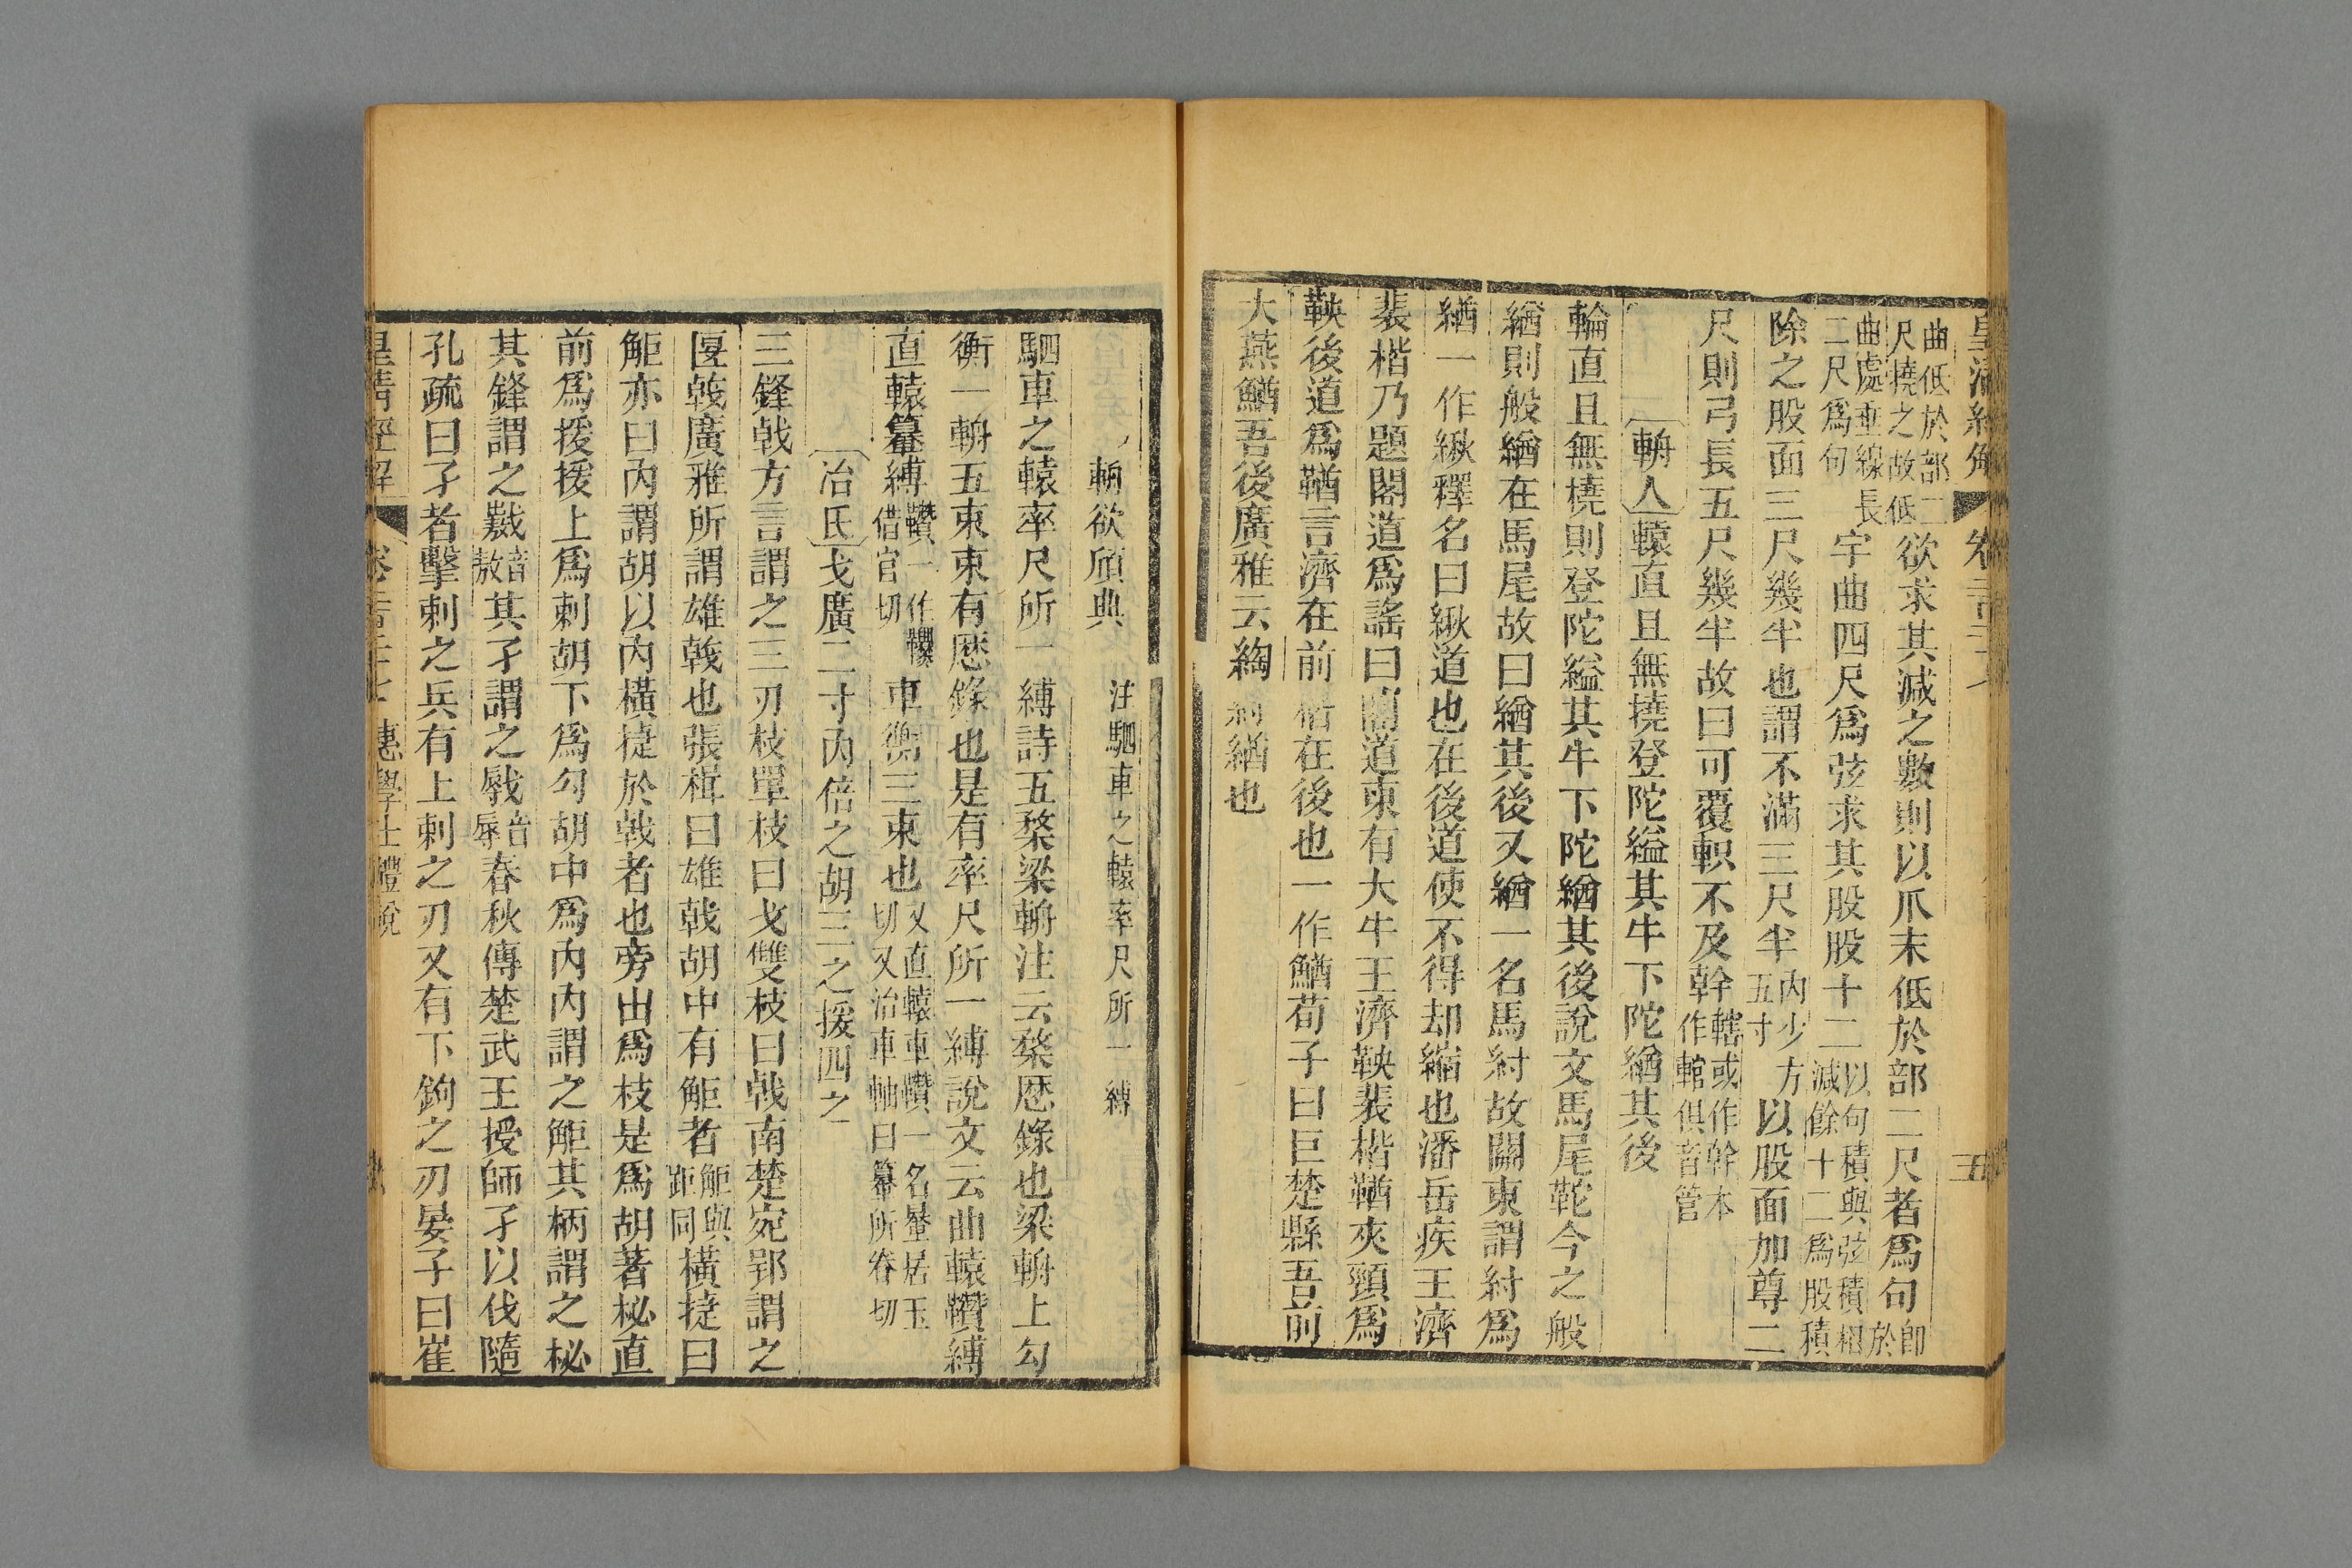 皇清經解 卷二百二十七 五
曲低於部二尺撓之故低二欲求其減之數則以爪末低於部二尺者爲句卽於
曲處垂線長二尺爲句宇曲四尺爲弦求其股股十二以句積與弦積相減餘十二爲股積
除之股面三尺幾半也謂不滿三尺半內少方五寸以股面加尊二
尺則弓長五尺幾半故曰可覆軹不及幹轄或作幹本作輨俱音管
輈人轅直且無撓登陀縊其牛下陀緧其後
輪直且無橈則登陀縊其牛下陀緧其後說文馬尾鞁今之般
緧則般緧在馬尾故曰緧其後又緧一名馬紂故關東謂紂爲
緧一作緅釋名曰緅道也在後道使不得却縮也潘岳疾王濟
裴楷乃題閣道爲謠曰閣道東有大牛王濟鞅裴楷鞧夾頸爲
鞅後道爲鞧言濟在前楷在後也一作鰌荀子曰巨楚縣吾前
大燕鰌吾後廣雅云綯紂緧也
輈欲頎典 注駟車之轅率尺所一縛
駟車之轅率尺所一縛詩五楘梁輈注云楘歷錄也梁輈上句
衡一輈五束束有歷錄也是有率尺所一縛說文云曲轅䡽縛
直轅䡺縛䡽一作借官切車衡三束也又直轅車䡽一名暈居玉切又治車軸曰䡺所眷切
冶氏戈廣二寸內倍之胡三之援四之
三鋒戟方言謂之三刃枝單枝曰戈雙枝曰戟南楚宛郢謂之
匽戟廣雅所謂雄戟也張楫曰雄戟胡中有䱟者䱟與距同橫揵曰
䱟亦曰內謂胡以內橫揵於戟者也旁出爲枝是爲胡著柲直
前爲援援上爲刺胡下爲句胡中爲內內謂之䱟其柄謂之柲
其鋒謂之䤴音敖其孑謂之戮音辱春秋傳楚武王授師孑以伐隨
孔疏曰孑者擊刺之兵有上刺之刃又有下鉤之刃晏子曰崔
皇清經解 卷二百二十七 惠學士禮說